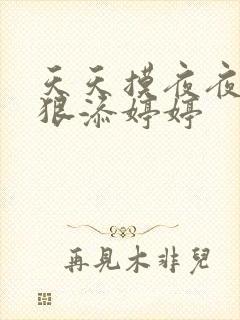 天天摸夜夜
狠添婷婷
再見木非兒